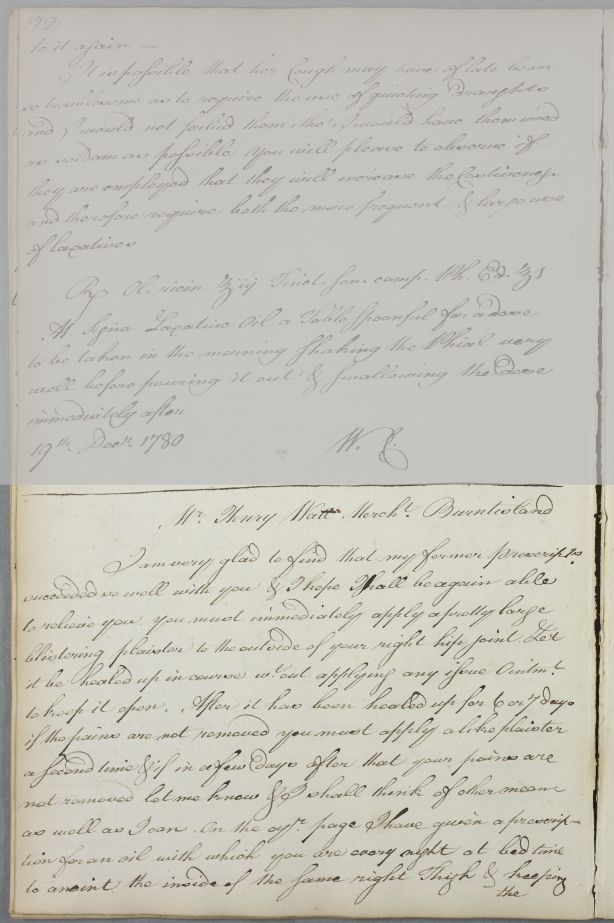 32
to it again —
It is possible that her Cough may have of late been
so troublesome as to require the use of quieting draughts
and I would not forbid them, tho' I would have them used
as seldom as possible you will please to observe if
they are employed that they will increase the Costiveness
and therefore require both the more frequent & large use
of laxatives
℞ Ol. ricin. ℥iij Tinct. sen. comp. Ph. Ed. ℥1
M Signa Laxative Oil a Table Spoonful for a dose
to be taken in the morning shaking the Phial very
well before pouring it out & swallowing the dose
immediately after
19th. Decr. 1780 W. C.
Mr. Henry Watt Mercht. Burntisland
I am very glad to find that my former prescripts.
succeeded so well with you & I hope I shall be again able
to relieve you. you must immediately apply a pretty large
blistering plaister to the outside of your right hip joint. Let
it be healed up in course wt. out applying any issue Ointmt.
to keep it open. After it has been healed up for 6 or 7 days
if the pains are not removed you must apply a like plaister
a second time & if in a few days after that your pains are
not removed let me know & I shall think of other means
as well as I can. On the oyr. page I have given a prescrip-
tion for an oil with which you are every night at bed time
to anoint the inside of the same right Thigh & keeping
the